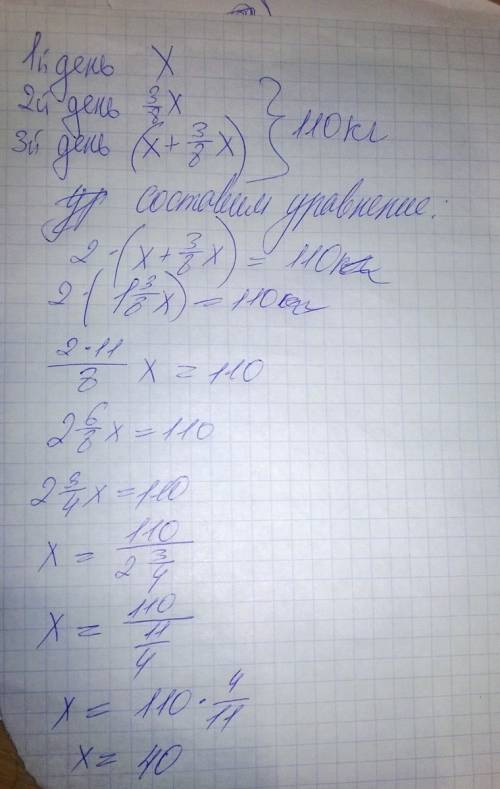 1й день X
2й день 3/8 X
3й день (X + 3/8 X) } 110 кг
составим уравнение:
2 · (X + 3/8 X) = 110 кг
2 · (1 3/8 X) = 110 кг
2·11/8 X = 110
2 6/8 X = 110
2 3/4 X = 110
X = 110/2 3/4
X = 110/11/4
X = 110 · 4/11
X = 40